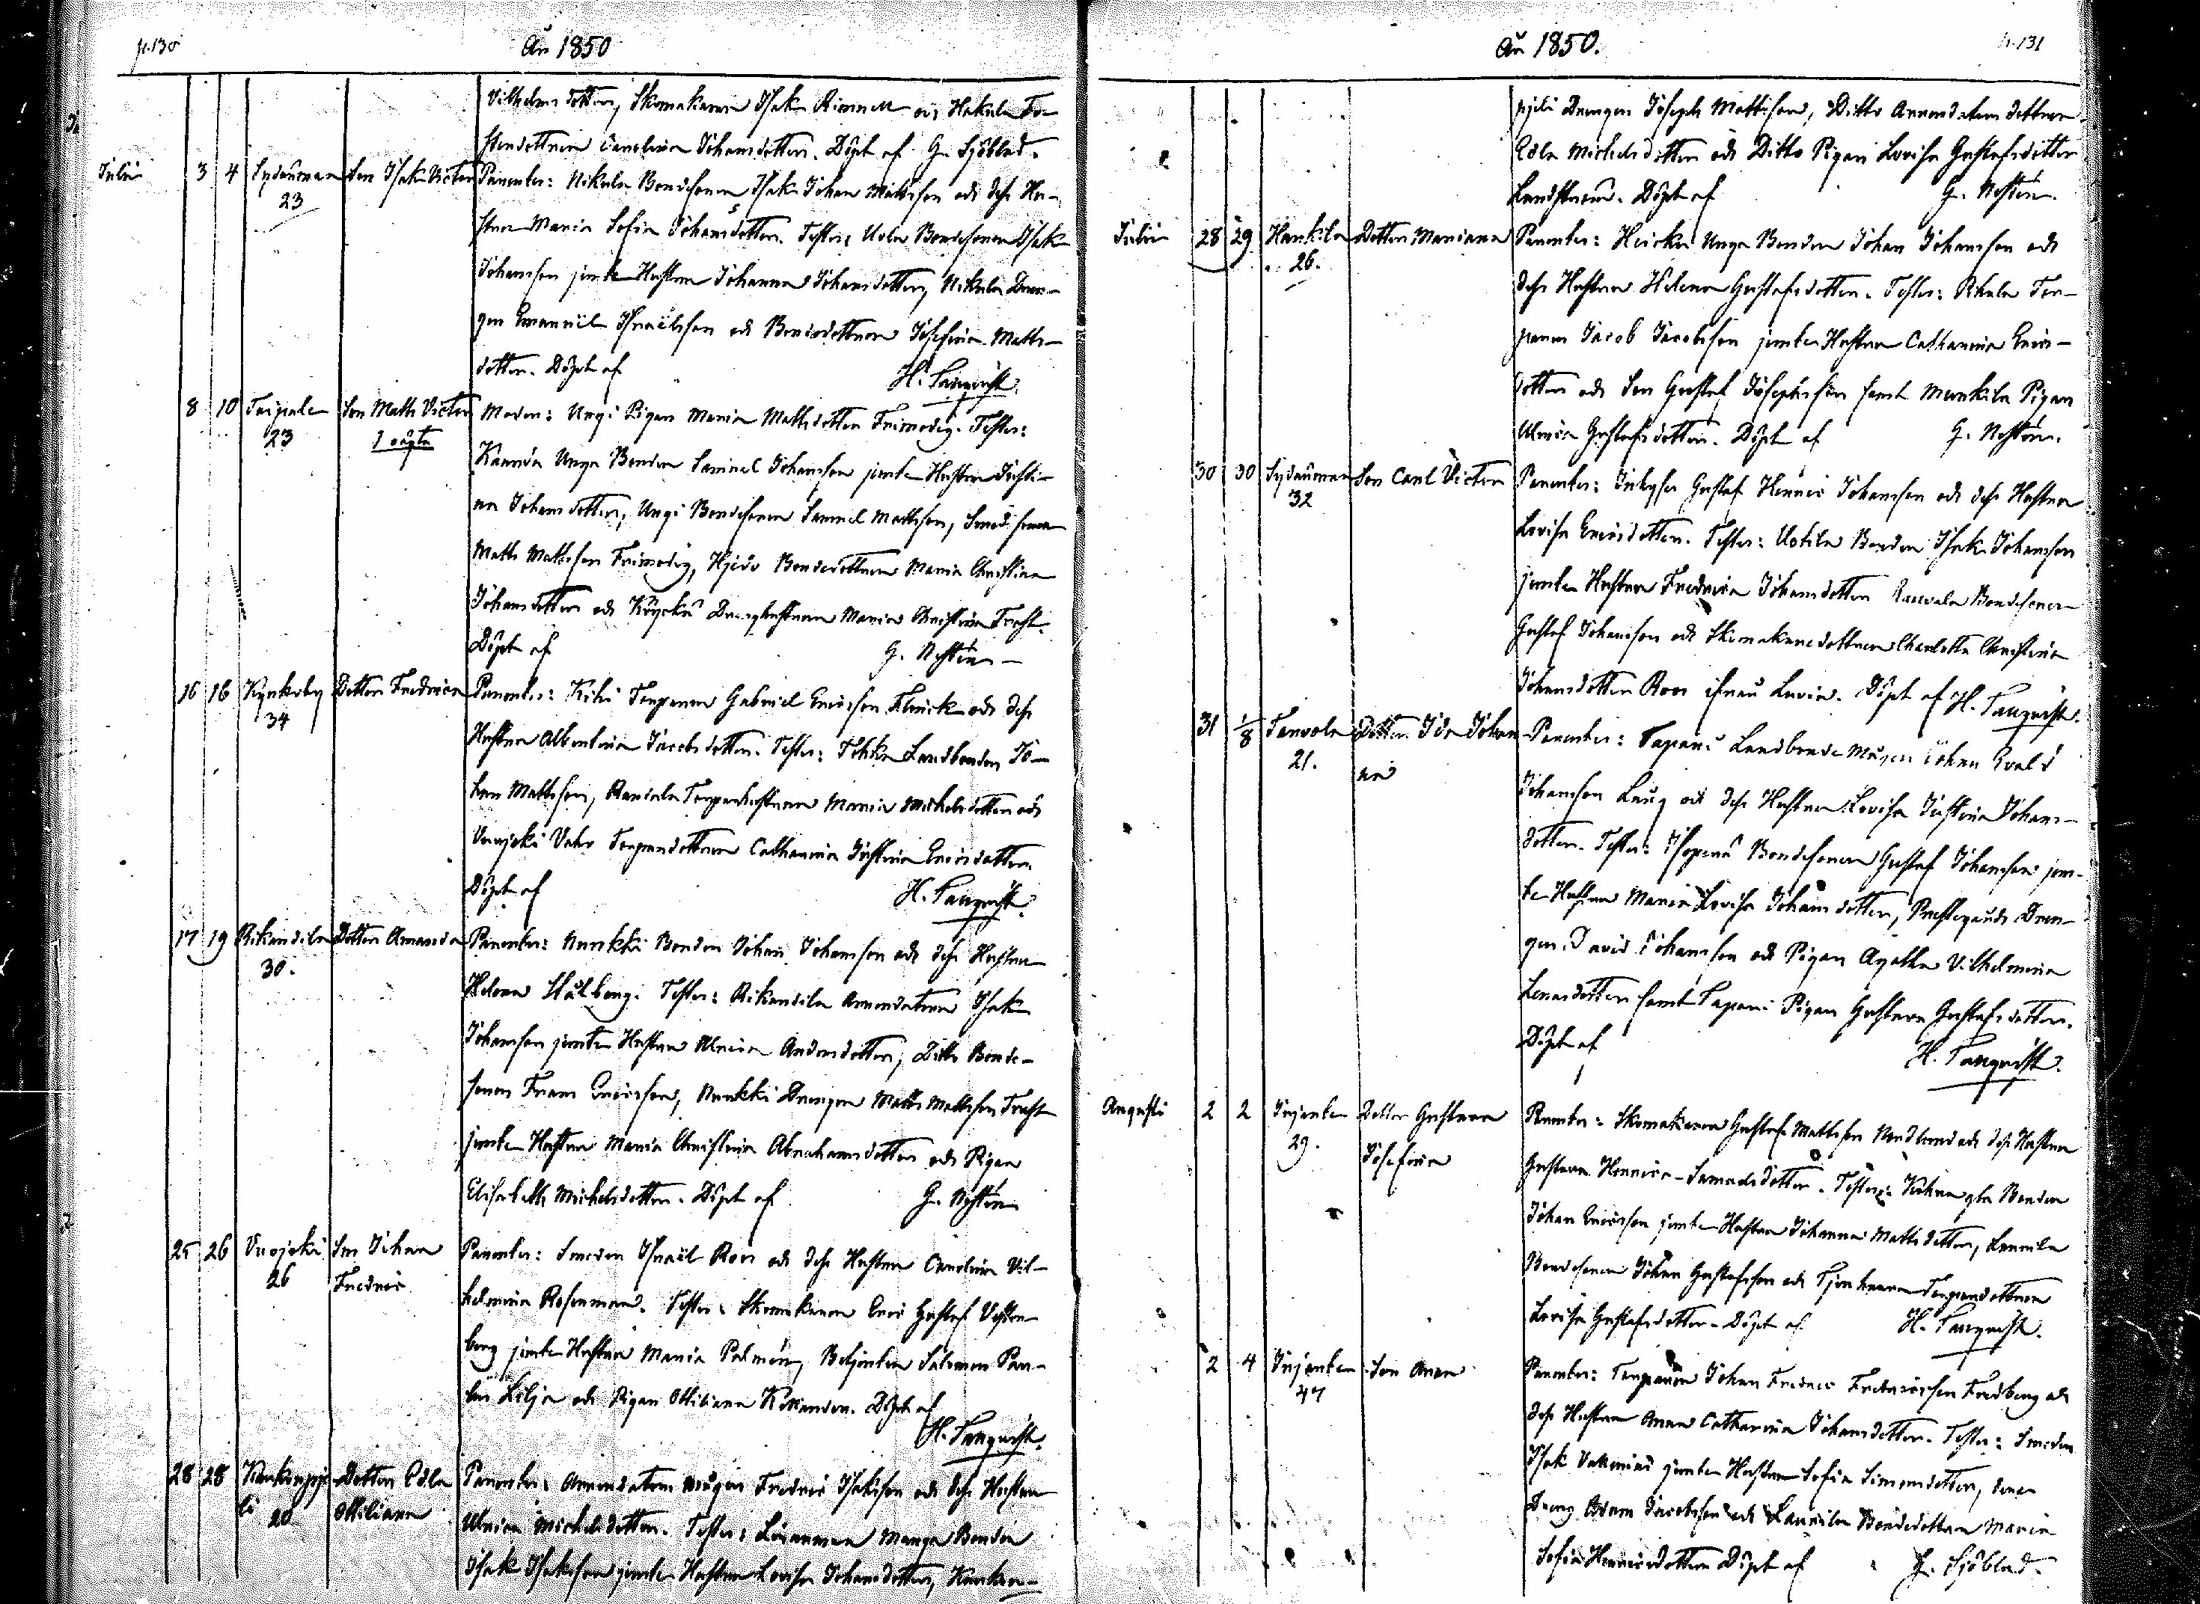 p. 130
Av 1850
Vilhelms dotter, Skomakaren Isak Rimmell och Hakula To-
stardottren Carolina Johansdotter. Döpt af G. Sjöblad.
Julii 3 4 Sydänmaa 23 Son Isak Victor Parenter: Nikula Bondsonen Isak Johan Mattsson och dess Hu-
strun Maria Sofia Johansdotter. Testes: Uola Bondesonen Isak
Johansson jemte Hustrun Johanna Johansdotter, Nikula Drän-
gen Emanuel Israelsson och Bondedottren Josefina Matts-
dotter. Döpt af H. Tanqvist.
8 10 Taipale 23 Son Matts Victor Moder: Ungi Pigan Maria Mattsdotter Frimodig. Testes:
1 oägta
Unga Bonden Samuel Johansson jemte Hustrun Justi-
na Johansdotter, Ungi Bondesonen Samuel Mattsson, Smedsonen
Matts Mattsson Frimodig, Hjedo Bondedottren Maria Christina
Johansdotter och Dränghustrun Maria Christina Trast.
Döpt af G. Nestén
16 16 34 Dotter Fredrica Parenter: Torparen Gabriel Ericsson Flinck och dess
Hustrun Albertina Jacobsdotter. Testes: Landbonden Jo-
han Mattsson, Torparehustrun Maria Michelsdotter och
Vuojoki Torparedottren Catharina Justina Ericsdotter.
Döpt af H. Tanqvist.
17 19 Rikandila 30. Dotter Amanda Parenter: Nurkki Bonden Johan Johansson och dess Hustrun
Helena Stålberg. Testes: Rikandila Arrendatoren Isak
Johansson jemte Hustrun Ulrica Andersdotter, Ditto Bonde-
sonen Frans Ericsson, Nurkki Drängen Matts Mattsson Trast
jemte Hustrun Maria Christina Abrahamsdotter och Pigan
Elisabeth Michelsdotter. Döpt af G. Nestén
25 26 Vuojoki 26 Son Johan Parenter: Smeden Israël Roos och dess Hustrun Carolina Vil-
Fredric
helmina Rosenman. Testes: Skomakaren Eric Gustaf Vesten-
berg jemte Hustrun Maria Palmén, Betjenten Salomon Pau-
lus Lilja och Pigan Ottiliana Döpt af
H. Tanqvist.
28 28 20 Dotter Edla Parenter: Arrendatorn mågen Fredric Isaksson och dess Hustrun
Ottiliana
Ulrica Michelsdotter. Testes: Bonden
Isak Isaksson jemte Hustrun Lovisa Johansdotter,
Av 1850.
p. 131
Drängen Joseph Mattsson, Ditto Arrendators dottren
Edla Michelsdotter och Ditto Pigan Lovisa Gustafsdotter
Döpt af G. Nestén.
Julii 28 29 Hankila 26. Dotter Mariana Parenter: Unga Bonden Johan Johansson och
dess Hustrun Helena Gustafsdotter. Testes: Tor-
paren Jacob Jacobsson jemte Hustrun Catharina Erics-
dotter och Son Gustaf Josephsson samt Munkila Pigan
Ulrica Gustafsdotter. Döpt af G. Nestén.
30 30 Sydänmaa 32 Son Carl Victor Parenter: Inhyses Gustaf Henric Johansson och dess Hustrun
Lovisa Ericsdotter. Testes: Uotila Bonden Isak Johansson
jemte Hustrun Fredrica Johansdotter Bondesonen
Gustaf Johansson och Skomakaredottren Charlotta Christina
Johansdotter Roos ifrån Lavia. Döpt af H. Tanqvist.
31 1/8 Tarvola 21. Dotter Ida Johan- Parenter: Tapani Landbonde Mågen Johan Evald
na
Johansson Laug och dess Hustrun Lovisa Justina Johans-
dotter. Testes: Isopenå Bondesonen Gustaf Johansson jem-
te Hustrun Maria Lovisa Johansdotter, Prestegårds Drän-
gen David Johansson och Pigan Agatha Vilhelmina
Lenasdotter samt Tapani Pigan Gustava Gustafsdotter.
Döpt af H. Tanqvist.
Augusti 2 2 Irjanten 29. Dotter Gustava Parenter: Skomakaren Gustaf Mattsson Nordlund och dess Hustrun
Josefina
Gustava Henrica Samuelsdotter. Testes: Bonden
Johan Ericsson jemte Hustrun Johanna Mattsdotter, Laurila
Bondesonen Johan Gustafsson och Torparedottren
Lovisa Gustafsdotter. Döpt af H. Tanqvist.
2 4 Irjanten 47 Son Aron Parenter: Torparen Johan Fredric Fredricsson Fredberg och
dess Hustrun Anna Catharina Johansdotter. Testes: Smeden
Isak jemte Hustrun Sofia Simonsdotter,
Dräng Adam Jacobsson och Laurila Bondedottren Maria
Sofia Henricsdotter Döpt af G. Sjöblad.